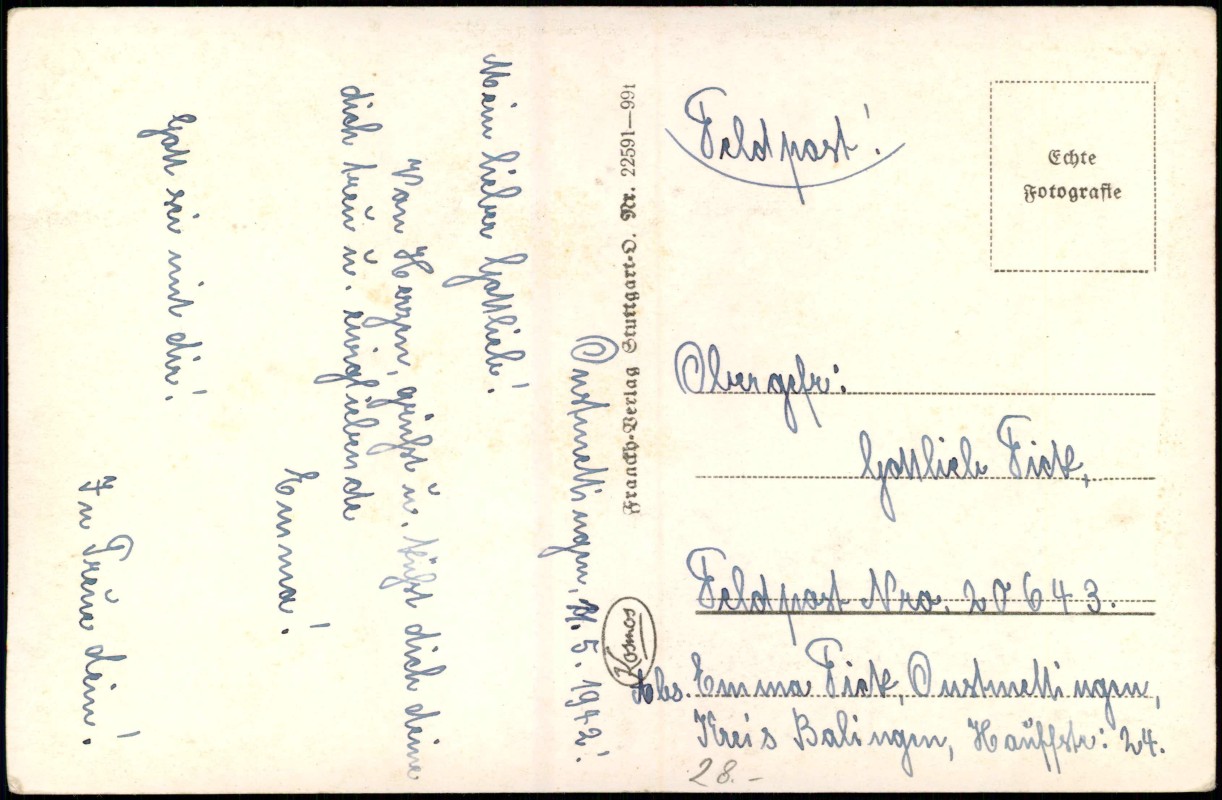 Onstmettingen, 5. 1942!
Mein lieber Gottlieb!
Von Herzen, grüßt u. küßt dich deine
dich treu u. ewigliebende
Emma!
Gott sei mit dir!
In Treue dein!
Franckh-Verlag Stuttgart-O. Nr. 22591—991
Kosmos
Feldpost!
Echte
Fotografie
Obergefr:
Gottlieb Fick,
Feldpost Nro. 20643.
Abs. Emma Fick, Onstmettingen,
Kreis Balingen, Hauffstr: 24.
28.-